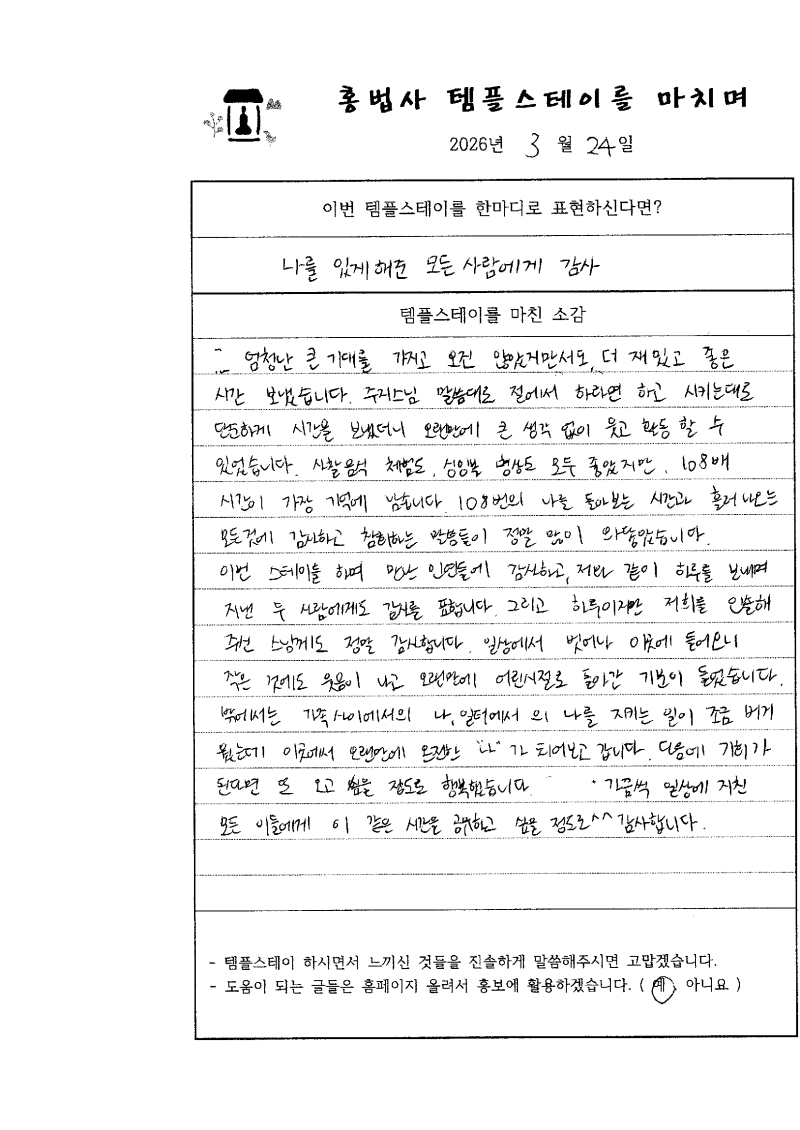 홍법사 템플스테이를 마치며
2026년 3 월 24일
이번 템플스테이를 한마디로 표현하신다면?
나를 있게 해준 모든 사람에게 감사
템플스테이를 마친 소감
엄청난 큰 기대를 가지고 오진 않았지만서도, 더 재밌고 좋은
시간 보냈습니다. 주지스님 말씀대로 절에서 하라면 하고 시키는대로
단순하게 시간을 보냈더니 오랜만에 큰 생각 없이 웃고 활동 할 수
있었습니다. 사찰음식 체험도, 싱잉볼 명상도 모두 좋았지만, 108배
시간이 가장 기억에 남습니다. 108번의 나를 돌아보는 시간과 흘러나오는
모든것에 감사하고 참회하는 말씀들이 정말 많이 와닿았습니다.
이번 스테이를 하며 만난 인연들에 감사하고, 저와 같이 하루를 보내며
지낸 두 사람에게도 감사를 표합니다. 그리고 하루이지만 저희를 인솔해
주신 스님께도 정말 감사합니다. 일상에서 벗어나 이곳에 들어오니
작은 것에도 웃음이 나고 오랜만에 어린시절로 돌아간 기분이 들었습니다.
밖에서는 가족사이에서의 나, 일터에서 의 나를 지키는 일이 조금 버거
웠는데 이곳에서 오랜만에 온전한 "나"가 되어보고 갑니다. 다음에 기회가
된다면 또 오고 싶을 정도로 행복했습니다. 가끔씩 일상에 지친
모든 이들에게 이 같은 시간을 공유하고 싶을 정도로^^ 감사합니다.
- 템플스테이 하시면서 느끼신 것들을 진솔하게 말씀해주시면 고맙겠습니다.
- 도움이 되는 글들은 홈페이지 올려서 홍보에 활용하겠습니다. ( 예, 아니요 )